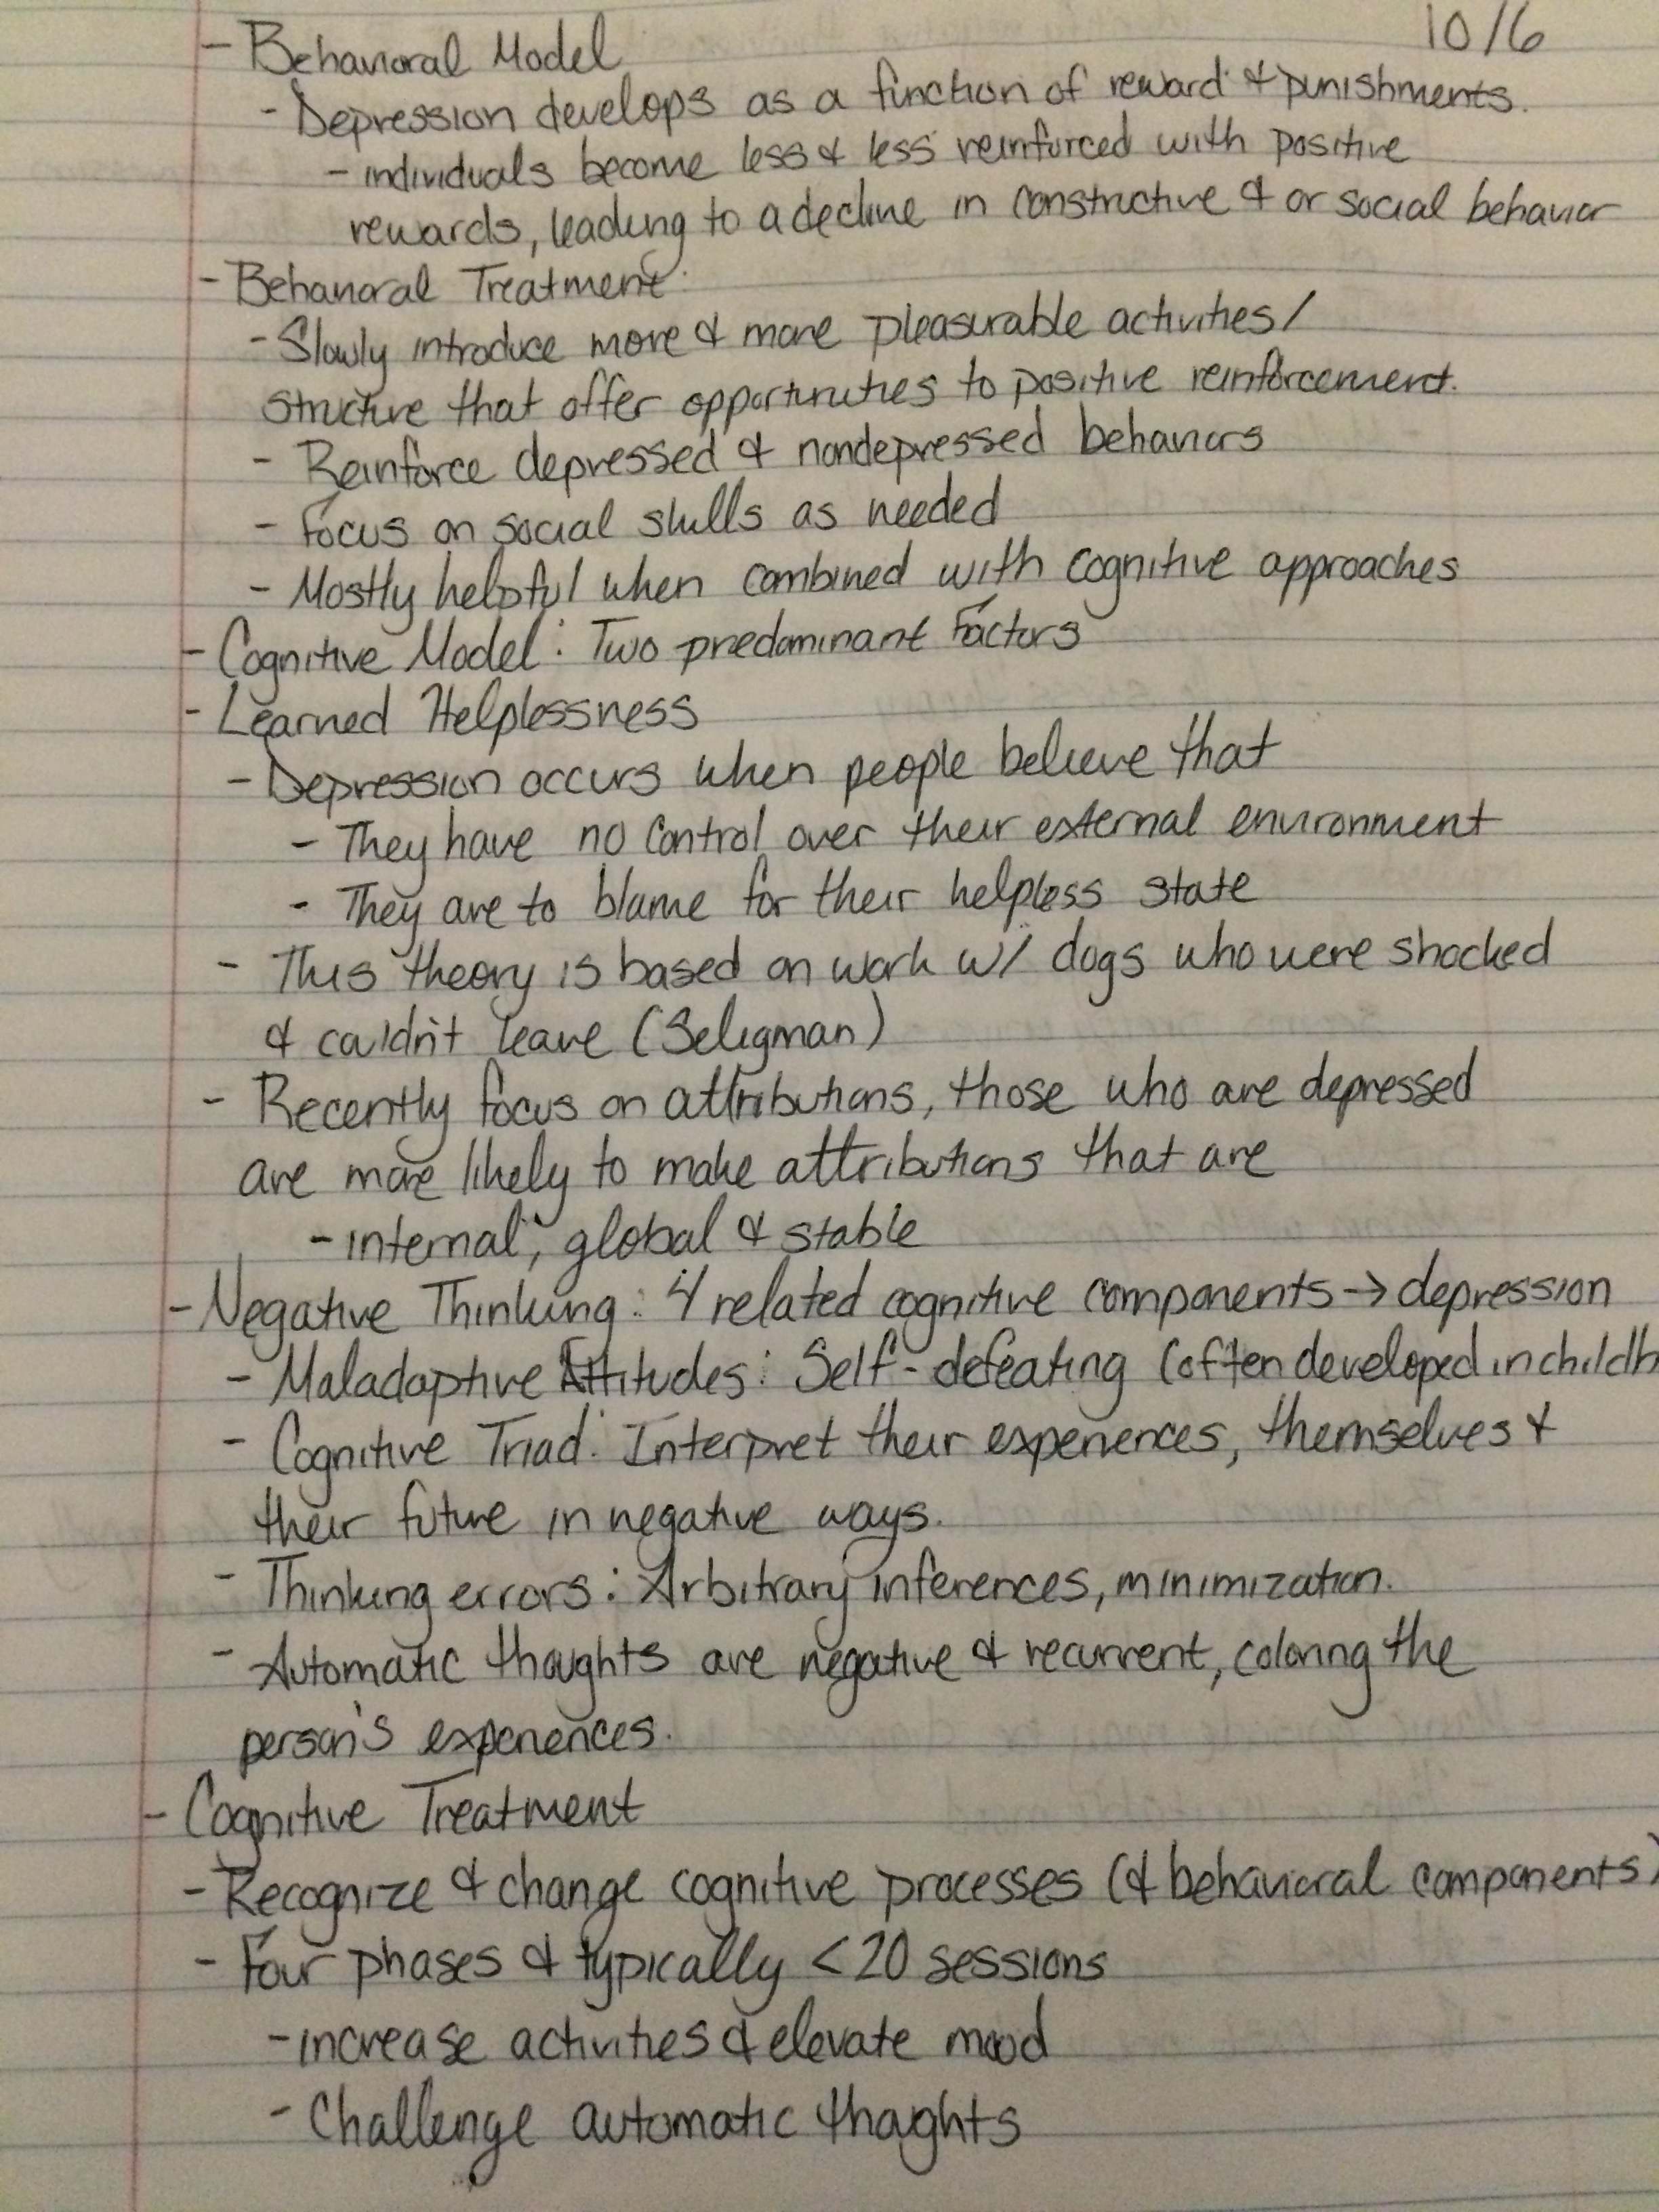 10/6
- Behavioral Model
- Depression develops as a function of reward & punishments.
- individuals become less & less reinforced with positive
rewards, leading to a decline in constructive & or social behavior
- Behavioral Treatment:
- Slowly introduce more & more pleasurable activities/
structure that offer opportunities to positive reinforcement.
- Reinforce depressed & nondepressed behaviors
- Focus on social skills as needed
- Mostly helpful when combined with cognitive approaches
- Cognitive Model: Two predominant Factors
- Learned Helplessness
- Depression occurs when people believe that
- They have no control over their external environment
- They are to blame for their helpless state
- This theory is based on work w/ dogs who were shocked
& couldn't leave (Seligman)
- Recently focus on attributions, those who are depressed
are more likely to make attributions that are
- internal, global & stable
- Negative Thinking: 4 related cognitive components → depression
- Maladaptive Attitudes: Self-defeating (often developed in childh
- Cognitive Triad: Interpret their experiences, themselves &
their future in negative ways.
- Thinking errors: Arbitrary inferences, minimization.
- Automatic thoughts are negative & recurrent, coloring the
person's experiences.
- Cognitive Treatment
- Recognize & change cognitive processes (& behavioral components)
- Four phases & typically < 20 sessions
- increase activities & elevate mood
- Challenge automatic thoughts